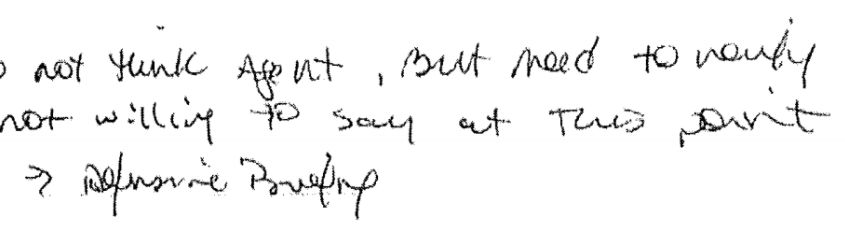 not think Agent, But need to verify
not willing to say at this point
→ Defensive Briefing